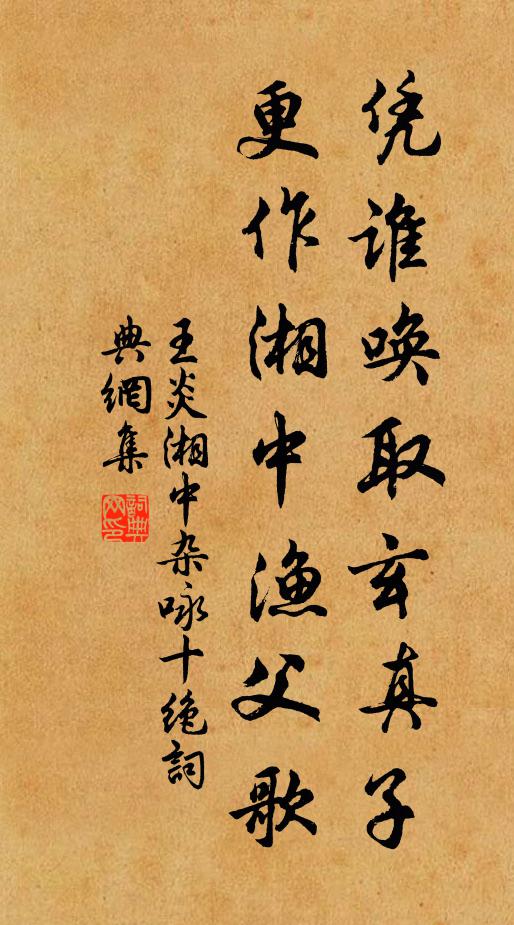 凭谁唤取玄真子
更作湘中漁父歌
王炎湘中杂咏十绝詞
典網集
詞典網印